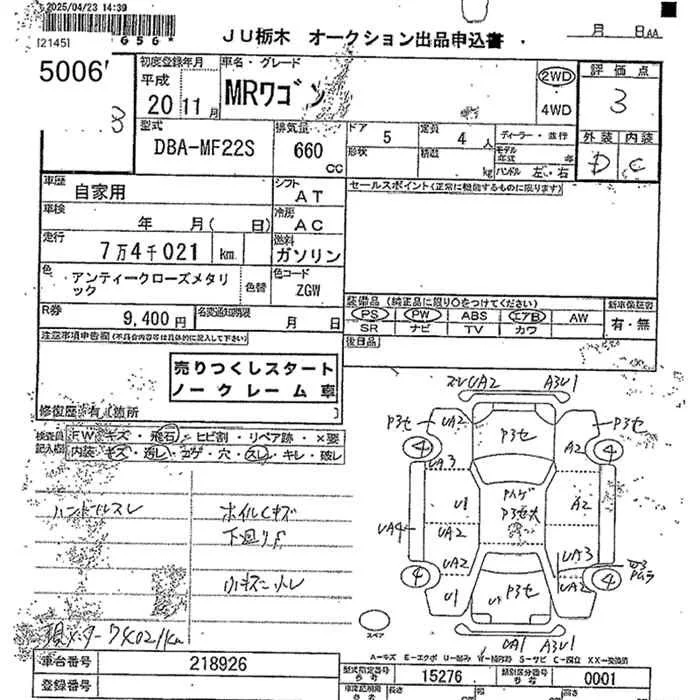 2025/04/23 14:39
[2145]
656*
JU栃木 オークション出品申込書
月 日AA
5006
初度登録年月
平成
20 11月
車名・グレード
MRワゴン
2WD
4WD
評価点
3
型式
DBA-MF22S
排気量
660
CC
ドア 5
定員 4人
形状
積載 kg
ディーラー・並行
モデル年式 年
ハンドル 左・右
外装 内装
D C
車歴
自家用
シフト
AT
セールスポイント(正常に機能するものに限ります)
車検
年 月( 日)
冷房
AC
走行
7万4千021 km
燃料
ガソリン
色
アンティークローズメタリック
色替
色コード
ZGW
R券
9,400円
名変通知期限
月 日
装備品(純正品に限り○をつけてください)
PS PW ABS エアB AW
SR ナビ TV カワ
新車保証書
有・無
後日品
注意事項申告欄(不具合内容等は具体的に記入して下さい)
売りつくしスタート
ノークレーム車
修復歴 有(箇所 )
検査員記入欄
FW キズ・飛石・ヒビ割・リペア跡・×要
内装 キズ・汚レ・コゲ・穴・スレ・キレ・破レ
ハンドルスレ
ホイルキズ
下廻りS
小キズ
UA2 A3U1
P3セ UA2 P3セ P3セ
4 A2 4
UA3
U1 P3セ大 A2
UA4 UA2
UA2 UA3
4 P3セ UA2 4
U1
UA1 A3U1
スペア
A=キズ E=エクボ U=凹み W=補修跡 S=サビ C=腐食 XX=交換済
車台番号 218926
登録番号
型式指定番号 15276
類別区分番号 0001
長さ
cm
幅
cm
高さ